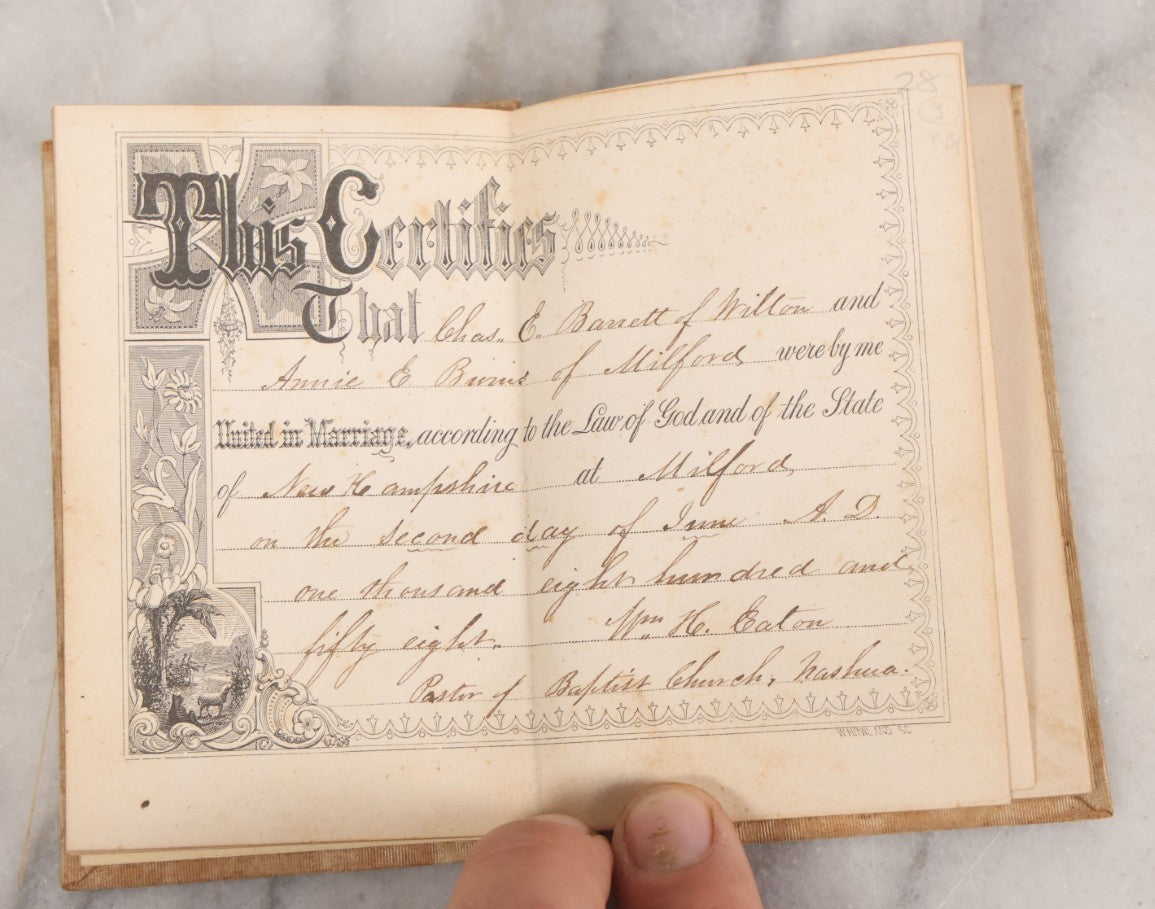 This Certifies
That Chas. E. Barrett of Wilton and
Annie E Burns of Milford were by me
United in Marriage, according to the Law of God and of the State
of New Hampshire at Milford
on the second day of June A.D.
one thousand eight hundred and
fifty eight. Wm. H. Eaton
Pastor of Baptist Church, Nashua.